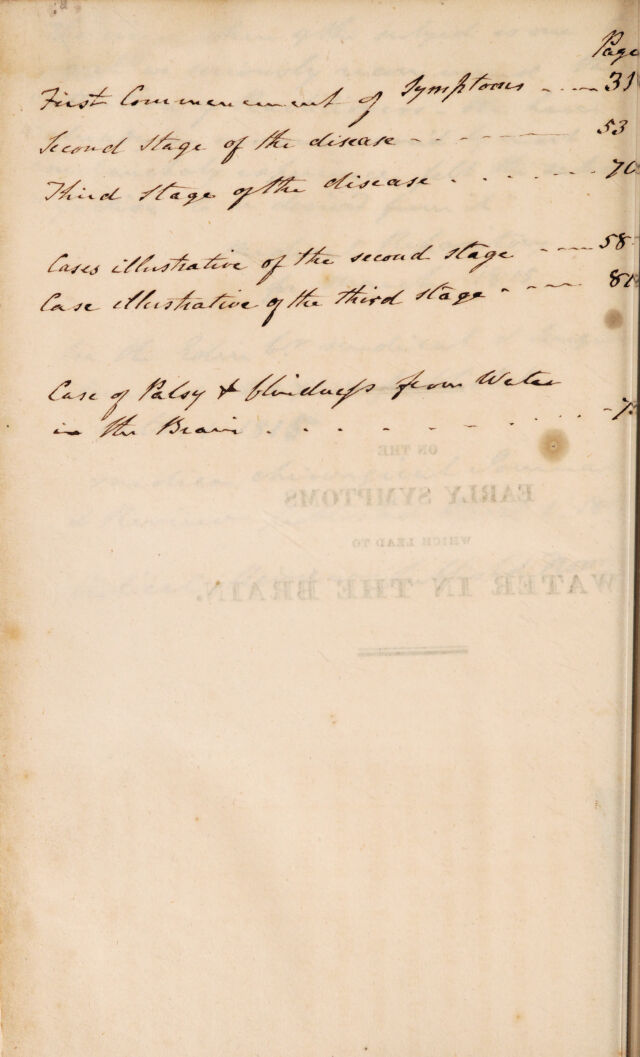 Page
First Commencement of Symptoms - - - - 31
Second Stage of the disease - - - - - - 53
Third Stage of the disease . - . - - - 70
Cases illustrative of the second stage - - - 58
Case illustrative of the third stage - - - - 81
Case of Palsy & blindness from Water
in the Brain . . . - - - . . . - 7
ON THE
EARLY SYMPTOMS
WHICH LEAD TO
WATER IN THE BRAIN.